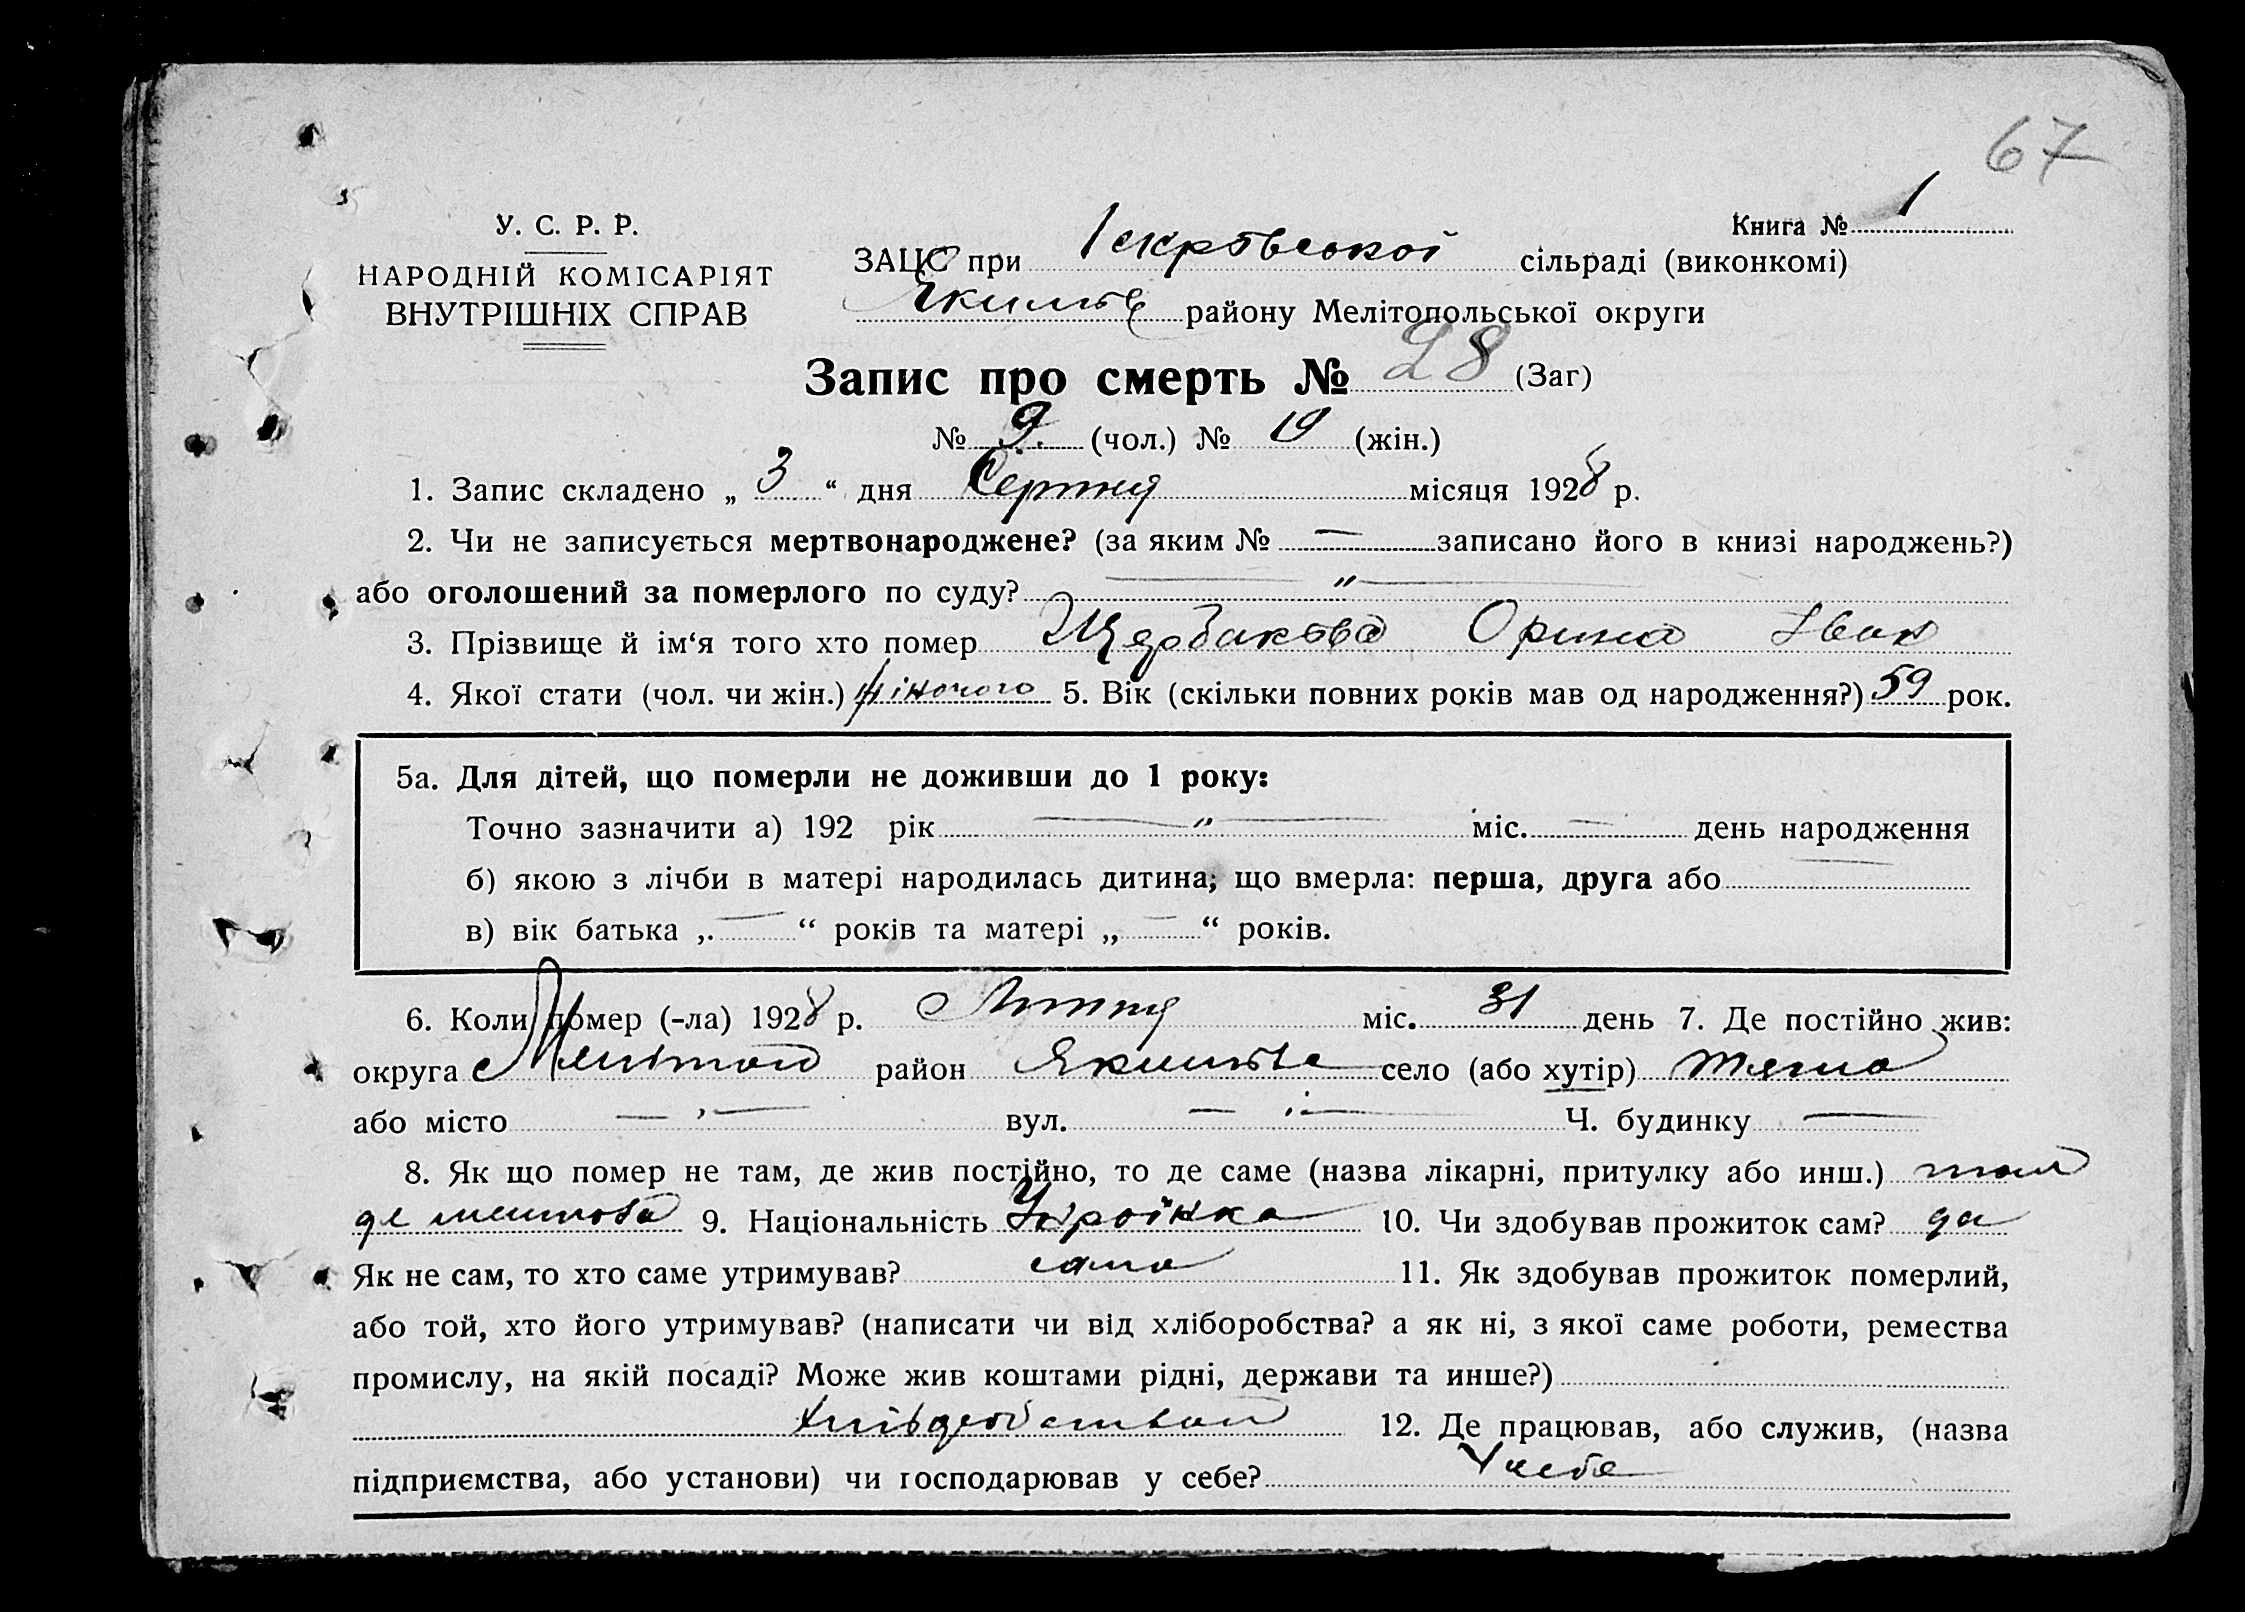 67
У. С. Р. Р.
НАРОДНІЙ КОМІСАРІЯТ
ВНУТРІШНІХ СПРАВ
Книга № 1
ЗАЦС при Іскрівської сільраді (виконкомі)
Якимів району Мелітопольської округи
Запис про смерть № 28 (Заг)
№ 9. (чол.) № 19 (жін.)
1. Запис складено „ 3 “ дня Серпня місяця 1928 р.
2. Чи не записується мертвонароджене? (за яким № — записано його в книзі народжень?)
або оголошений за померлого по суду? — „ —
3. Прізвище й ім‘я того хто помер Щербакова Орина Іван
4. Якої стати (чол. чи жін.) жіночого 5. Вік (скільки повних років мав од народження?) 59 рок.
5а. Для дітей, що померли не доживши до 1 року:
Точно зазначити а) 192 рік — „ — міс. — день народження
б) якою з лічби в матері народилась дитина; що вмерла: перша, друга або —
в) вік батька „ — “ років та матері „ — “ років.
6. Коли помер (-ла) 1928 р. Липня міс. 31 день 7. Де постійно жив:
округа Мелітоп район Якимівс село (або хутір)
або місто — „ — вул. — „ — Ч. будинку —
8. Як що помер не там, де жив постійно, то де саме (назва лікарні, притулку або инш.) там
де 9. Національність Украінка 10. Чи здобував прожиток сам? да
Як не сам, то хто саме утримував? сама 11. Як здобував прожиток померлий,
або той, хто його утримував? (написати чи від хліборобства? а як ні, з якої саме роботи, ремества
промислу, на якій посаді? Може жив коштами рідні, держави та инше?)
12. Де працював, або служив, (назва
підприємства, або установи) чи господарював у себе? У себе